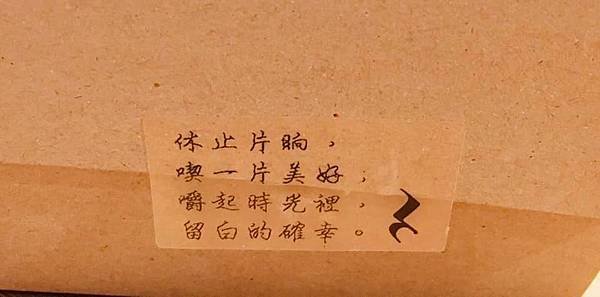 休止片晌，
喫一片美好；
嚼起時光裡，
留白的確幸。